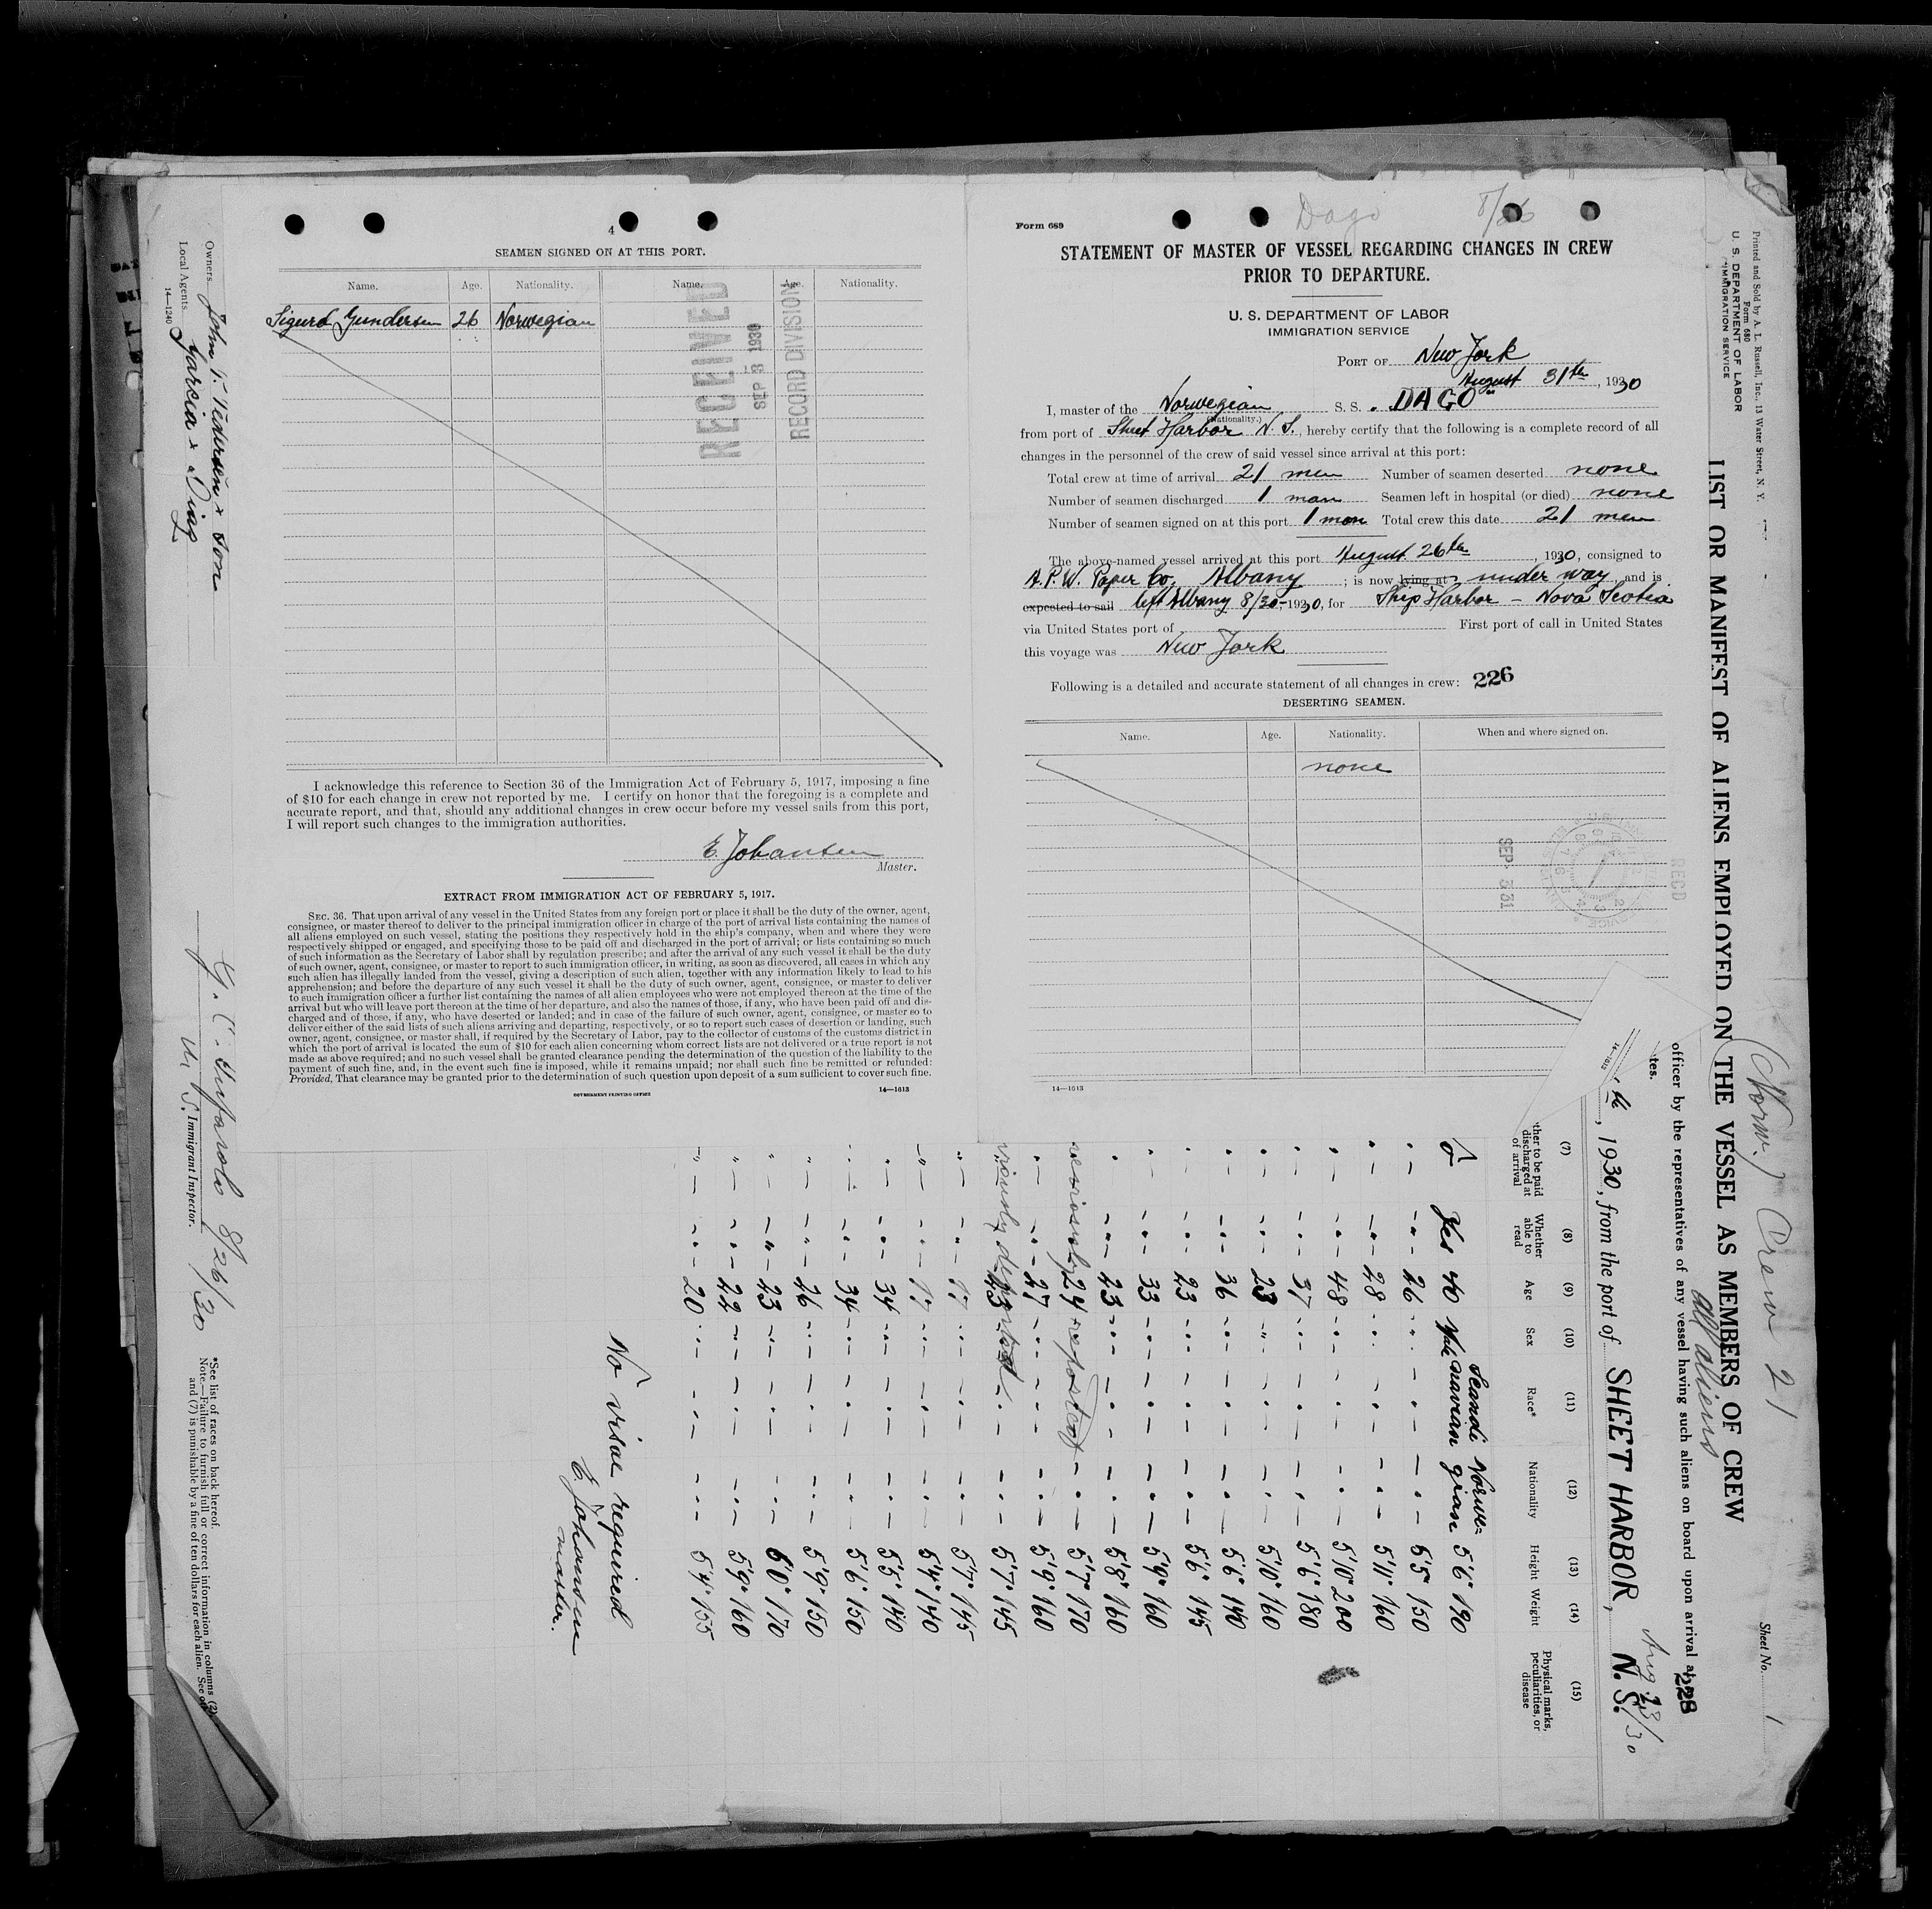 4
SEAMEN SIGNED ON AT THIS PORT.
Name. Age. Nationality. Name. Age. Nationality.
Sigurd Gundersen 26 Norwegian
RECEIVED
SEP 3 1930
RECORD DIVISION
I acknowledge this reference to Section 36 of the Immigration Act of February 5, 1917, imposing a fine
of $10 for each change in crew not reported by me. I certify on honor that the foregoing is a complete and
accurate report, and that, should any additional changes in crew occur before my vessel sails from this port,
I will report such changes to the immigration authorities.
E. Johansen
Master.
EXTRACT FROM IMMIGRATION ACT OF FEBRUARY 5, 1917.
SEC. 36. That upon arrival of any vessel in the United States from any foreign port or place it shall be the duty of the owner, agent,
consignee, or master thereof to deliver to the principal immigration officer in charge of the port of arrival lists containing the names of
all aliens employed on such vessel, stating the positions they respectively hold in the ship's company, when and where they were
respectively shipped or engaged, and specifying those to be paid off and discharged in the port of arrival; or lists containing so much
of such information as the Secretary of Labor shall by regulation prescribe; and after the arrival of any such vessel it shall be the duty
of such owner, agent, consignee, or master to report to such immigration officer, in writing, as soon as discovered, all cases in which any
such alien has illegally landed from the vessel, giving a description of such alien, together with any information likely to lead to his
apprehension; and before the departure of any such vessel it shall be the duty of such owner, agent, consignee, or master to deliver
to such immigration officer a further list containing the names of all alien employees who were not employed thereon at the time of the
arrival but who will leave port thereon at the time of her departure, and also the names of those, if any, who have been paid off and dis-
charged and of those, if any, who have deserted or landed; and in case of the failure of such owner, agent, consignee, or master so to
deliver either of the said lists of such aliens arriving and departing, respectively, or so to report such cases of desertion or landing, such
owner, agent, consignee, or master shall, if required by the Secretary of Labor, pay to the collector of customs of the customs district in
which the port of arrival is located the sum of $10 for each alien concerning whom correct lists are not delivered or a true report is not
made as above required; and no such vessel shall be granted clearance pending the determination of the question of the liability to the
payment of such fine, and, in the event such fine is imposed, while it remains unpaid; nor shall such fine be remitted or refunded:
Provided, That clearance may be granted prior to the determination of such question upon deposit of a sum sufficient to cover such fine.
GOVERNMENT PRINTING OFFICE 14—1613
Dago 8/26
Form 689
STATEMENT OF MASTER OF VESSEL REGARDING CHANGES IN CREW
PRIOR TO DEPARTURE.
U. S. DEPARTMENT OF LABOR
IMMIGRATION SERVICE
PORT OF New York
August 31th, 1930
I, master of the Norwegian S. S. "DAGO"
(Nationality.)
from port of Sheet Harbor N. S., hereby certify that the following is a complete record of all
changes in the personnel of the crew of said vessel since arrival at this port:
Total crew at time of arrival 21 men Number of seamen deserted none
Number of seamen discharged 1 man Seamen left in hospital (or died) none
Number of seamen signed on at this port 1 man Total crew this date 21 men
The above-named vessel arrived at this port August 26th, 1930, consigned to
A. P. W. Paper Co. Albany; is now lying at under way, and is
expected to sail left Albany 8/30-1930, for Ship Harbor - Nova Scotia
via United States port of First port of call in United States
this voyage was New York
Following is a detailed and accurate statement of all changes in crew: 226
DESERTING SEAMEN.
Name. Age. Nationality. When and where signed on.
none
SEP 3
RECD
14—1613
Printed and Sold by A. L. Russell, Inc., 13 Water Street, N. Y.
Form 680
U. S. DEPARTMENT OF LABOR
IMMIGRATION SERVICE
Sheet No. 1
(Norw.) Crew 21
all aliens
LIST OR MANIFEST OF ALIENS EMPLOYED ON THE VESSEL AS MEMBERS OF CREW
officer by the representatives of any vessel having such aliens on board upon arrival at
228
tes.
Aug 23/30
14—1613
th, 1930, from the port of SHEET HARBOR, N. S.
(7) (8) (9) (10) (11) (12) (13) (14) (15)
ther to be paid
discharged at
of arrival
Whether
able to
read
Age
Sex
Race*
Nationality
Height
Weight
Physical marks,
peculiarities, or
disease
Yes 40 Male Scandinavian Norwegian 5'6" 190
" " 26 " " " 5'5" 150
" " 28 " " " 5'11" 160
" " 48 " " " 5'10" 200
" " 37 " " " 5'6" 180
" " 23 " " " 5'10" 160
" " 36 " " " 5'6" 140
" " 23 " " " 5'6" 145
" " 33 " " " 5'9" 160
" " 23 " " " 5'8" 160
previously 24 reported " 5'7" 170
" " 27 " " " 5'9" 160
previously deported 23 " " 5'7" 145
" " 17 " " " 5'7" 145
" " 17 " " " 5'4" 140
" " 34 " " " 5'5" 140
" " 34 " " " 5'6" 150
" " 26 " " " 5'9" 150
" " 23 " " " 6'0" 170
" " 22 " " " 5'9" 160
" " 20 " " " 5'4" 155
No visae required
E. Johansen
master.
*See list of races on back hereof.
Note.—Failure to furnish full or correct information in columns (2),
and (7) is punishable by a fine of ten dollars for each alien. See
8/26/30
U. S. Immigrant Inspector.
Owners
Local Agents Garcia & Diaz
14—1240